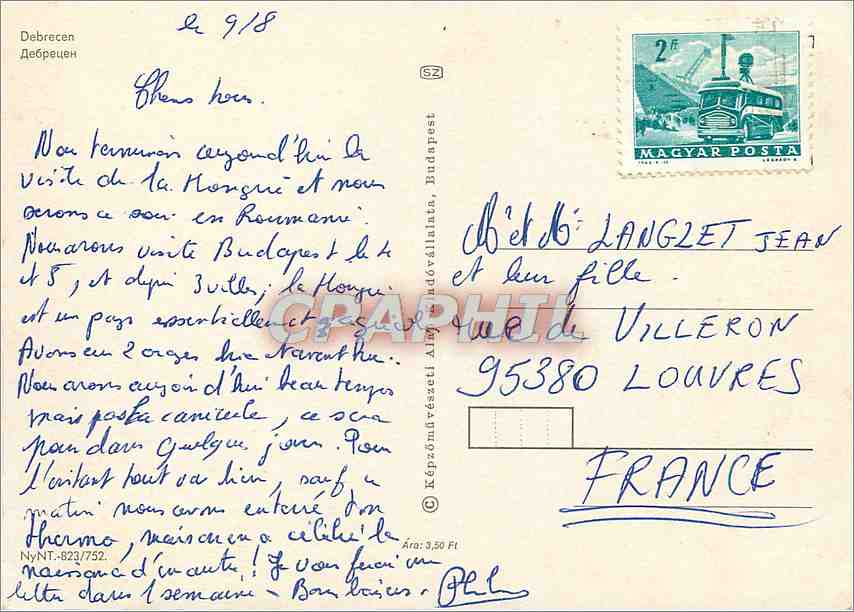 Debrecen
Дебрецен
le 9/8
SZ
2 Ft
MAGYAR POSTA
Chers tous.
Nous terminons aujourd'hui la
visite de la Hongrie et nous
serons ce soir en Roumanie.
Nous avons visité Budapest le 4
et 5, et depuis 3 villes; la Hongrie
est un pays essentiellement agricole
Avons eu 2 orages hier et avant hier.
Nous avons aujourd'hui beau temps
mais pas la canicule, ce sera
pour dans quelques jours. Pour
l'instant tout va bien, sauf ce
matin nous avons enterré 1
thermo, mais on a célébré la
naissance d'un autre! Je vous ferai une
lettre dans 1 semaine - Bons baisers.
Mr et Mme LANGLET JEAN
et leur fille.
rue de VILLERON
95380 LOUVRES
FRANCE
CRAPHIL
© Képzőművészeti Alap Kiadóvállalata, Budapest
NyNT.-823/752.
Ára: 3,50 Ft